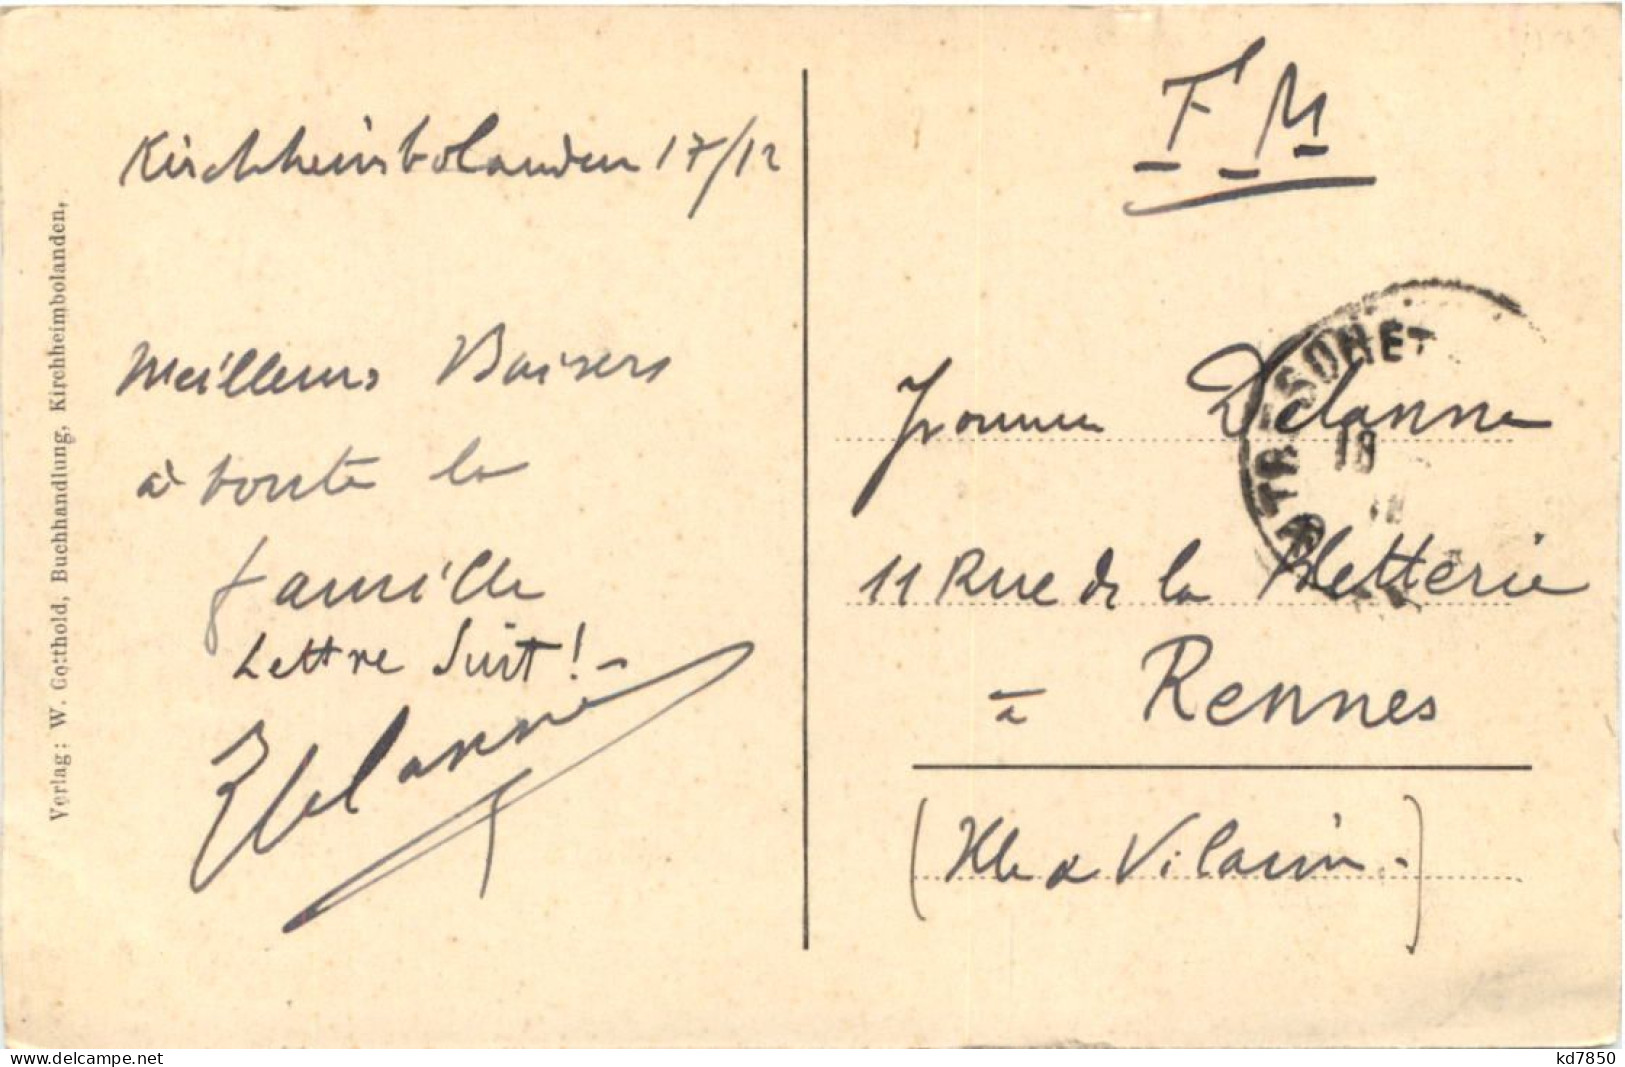 Verlag: W. Gotthold, Buchhandlung, Kirchheimbolanden,
Kirchheimbolanden 17/12
Meilleurs Baisers
à toute la
famille
Lettre suit! -
Delanne
F M
Yvonne Delanne
11 Rue de la Pletterie
à Rennes
(Ille & Vilaine.)
TR
18
delcampe.net
kd7850